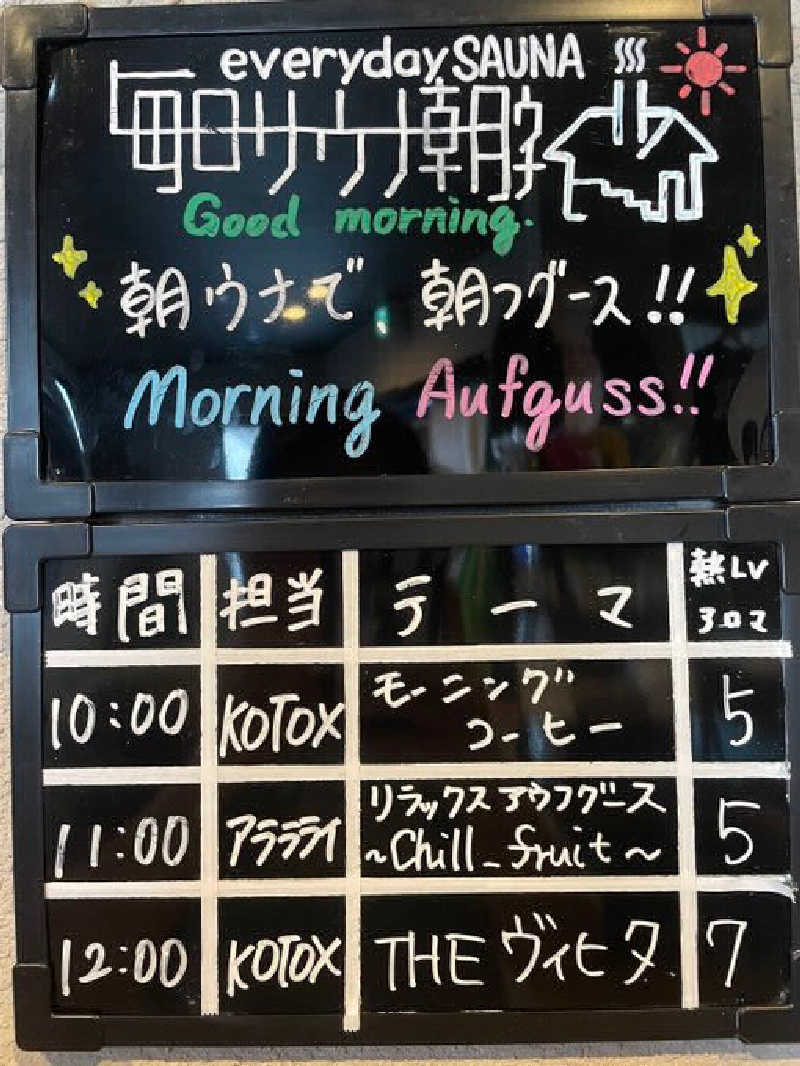 everyday SAUNA
毎日サウナ朝
Good morning.
朝ウナで 朝フグース!!
Morning Aufguss!!
時間 担当 テーマ 熱LV アロマ
10:00 KOTOX モーニング コーヒー 5
11:00 アララライ リラックスアウフグース ~Chill_fruit~ 5
12:00 KOTOX THE ヴィヒタ 7